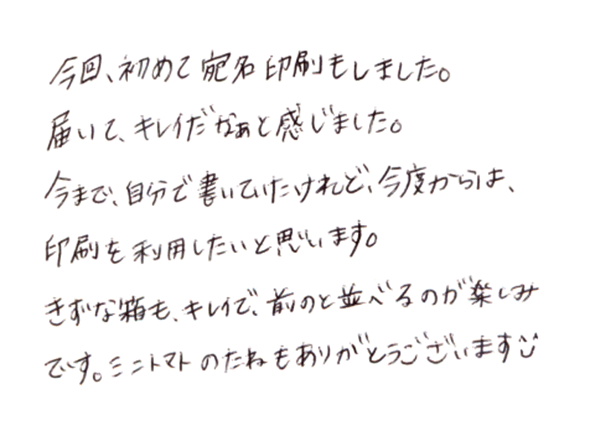 今回、初めて宛名印刷もしました。
届いて、キレイだなぁと感じました。
今まで、自分で書いていたけれど、今度からは、
印刷を利用したいと思います。
きずな箱も、キレイで、前のと並べるのが楽しみ
です。ミニトマトのたねもありがとうございます